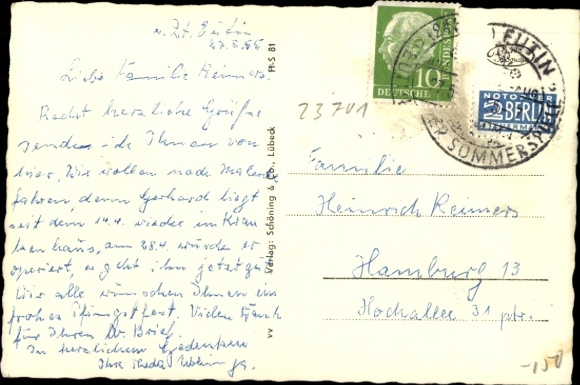 z. Zt. Eutin
27.5.55
Liebe Familie Reimers!
Recht herzliche Grüße
sende ich Ihnen von
hier. Wir wollen nach Malente
fahren, denn Gerhard liegt
seit dem 14.4. wieder im Kran
kenhaus, am 28.4. wurde er
operiert, es geht ihm jetzt gut
Wir alle wünschen Ihnen ein
frohes Pfingstfest. Vielen Dank
für Ihren lb. Brief.
In herzlichem Gedenken
Ihre
FI-S 81
VV Verlag: Schöning & Co., Lübeck
10
DEUTSCHE BUNDESPOST
EUTIN
NOTOPFER
2 BERLIN
STEUERMARKE
SOMMERSPIELE
23701
Familie
Heinrich Reimers
Hamburg 13
Hochallee 31 ptr.
-,50